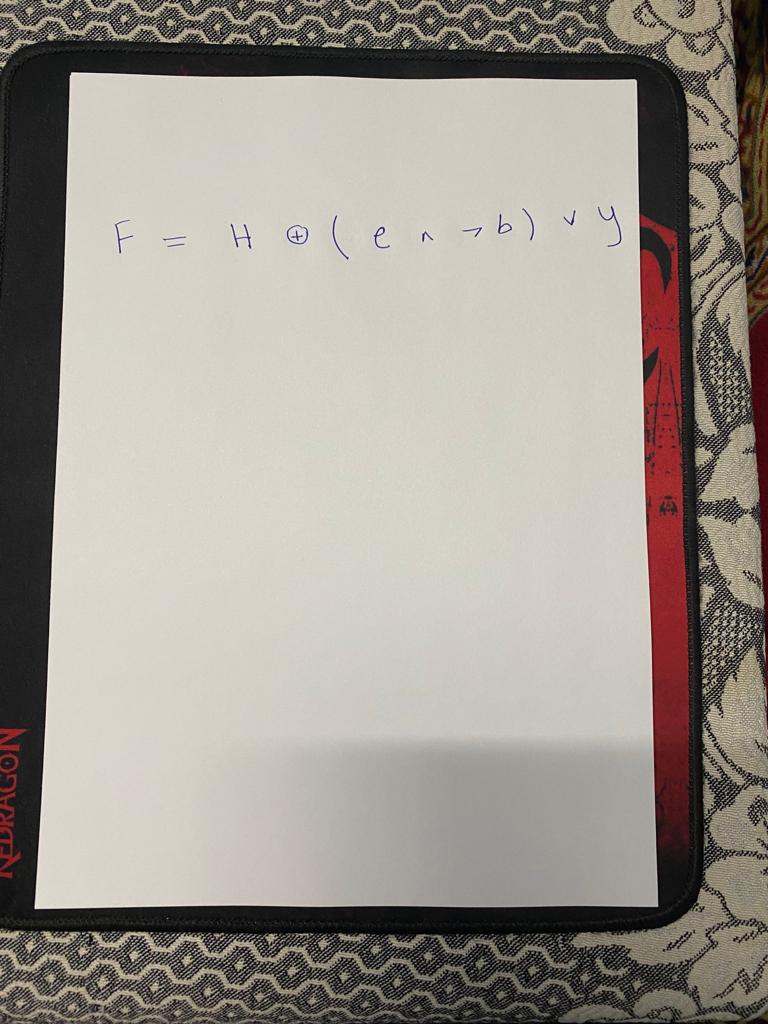 F = H ⊕ ( e ∧ ¬ b ) ∨ y
REDRAGON